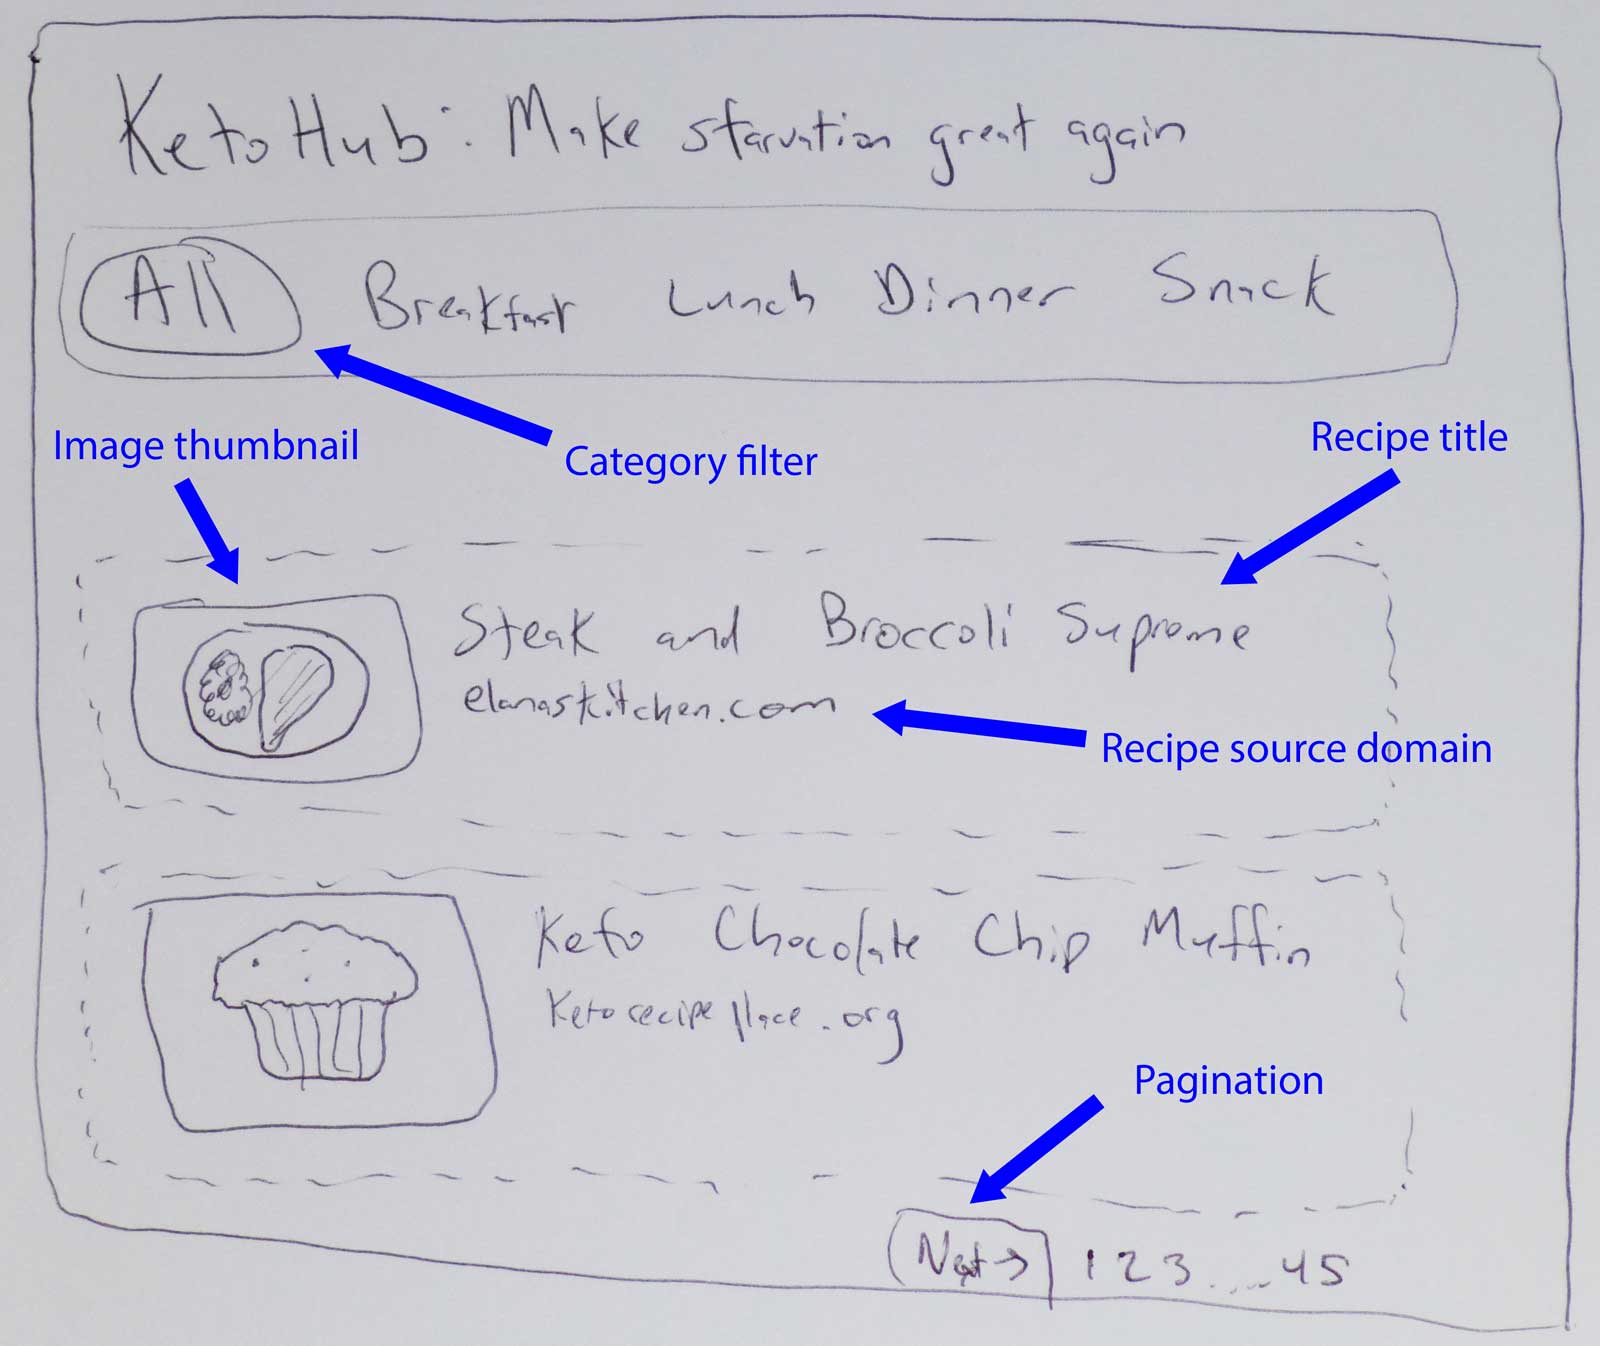 KetoHub: Make starvation great again
All Breakfast Lunch Dinner Snack
Image thumbnail
Category filter
Recipe title
Steak and Broccoli Supreme
elanaskitchen.com
Recipe source domain
Keto Chocolate Chip Muffin
Ketorecipeplace.org
Pagination
Next → 1 2 3 .... 45